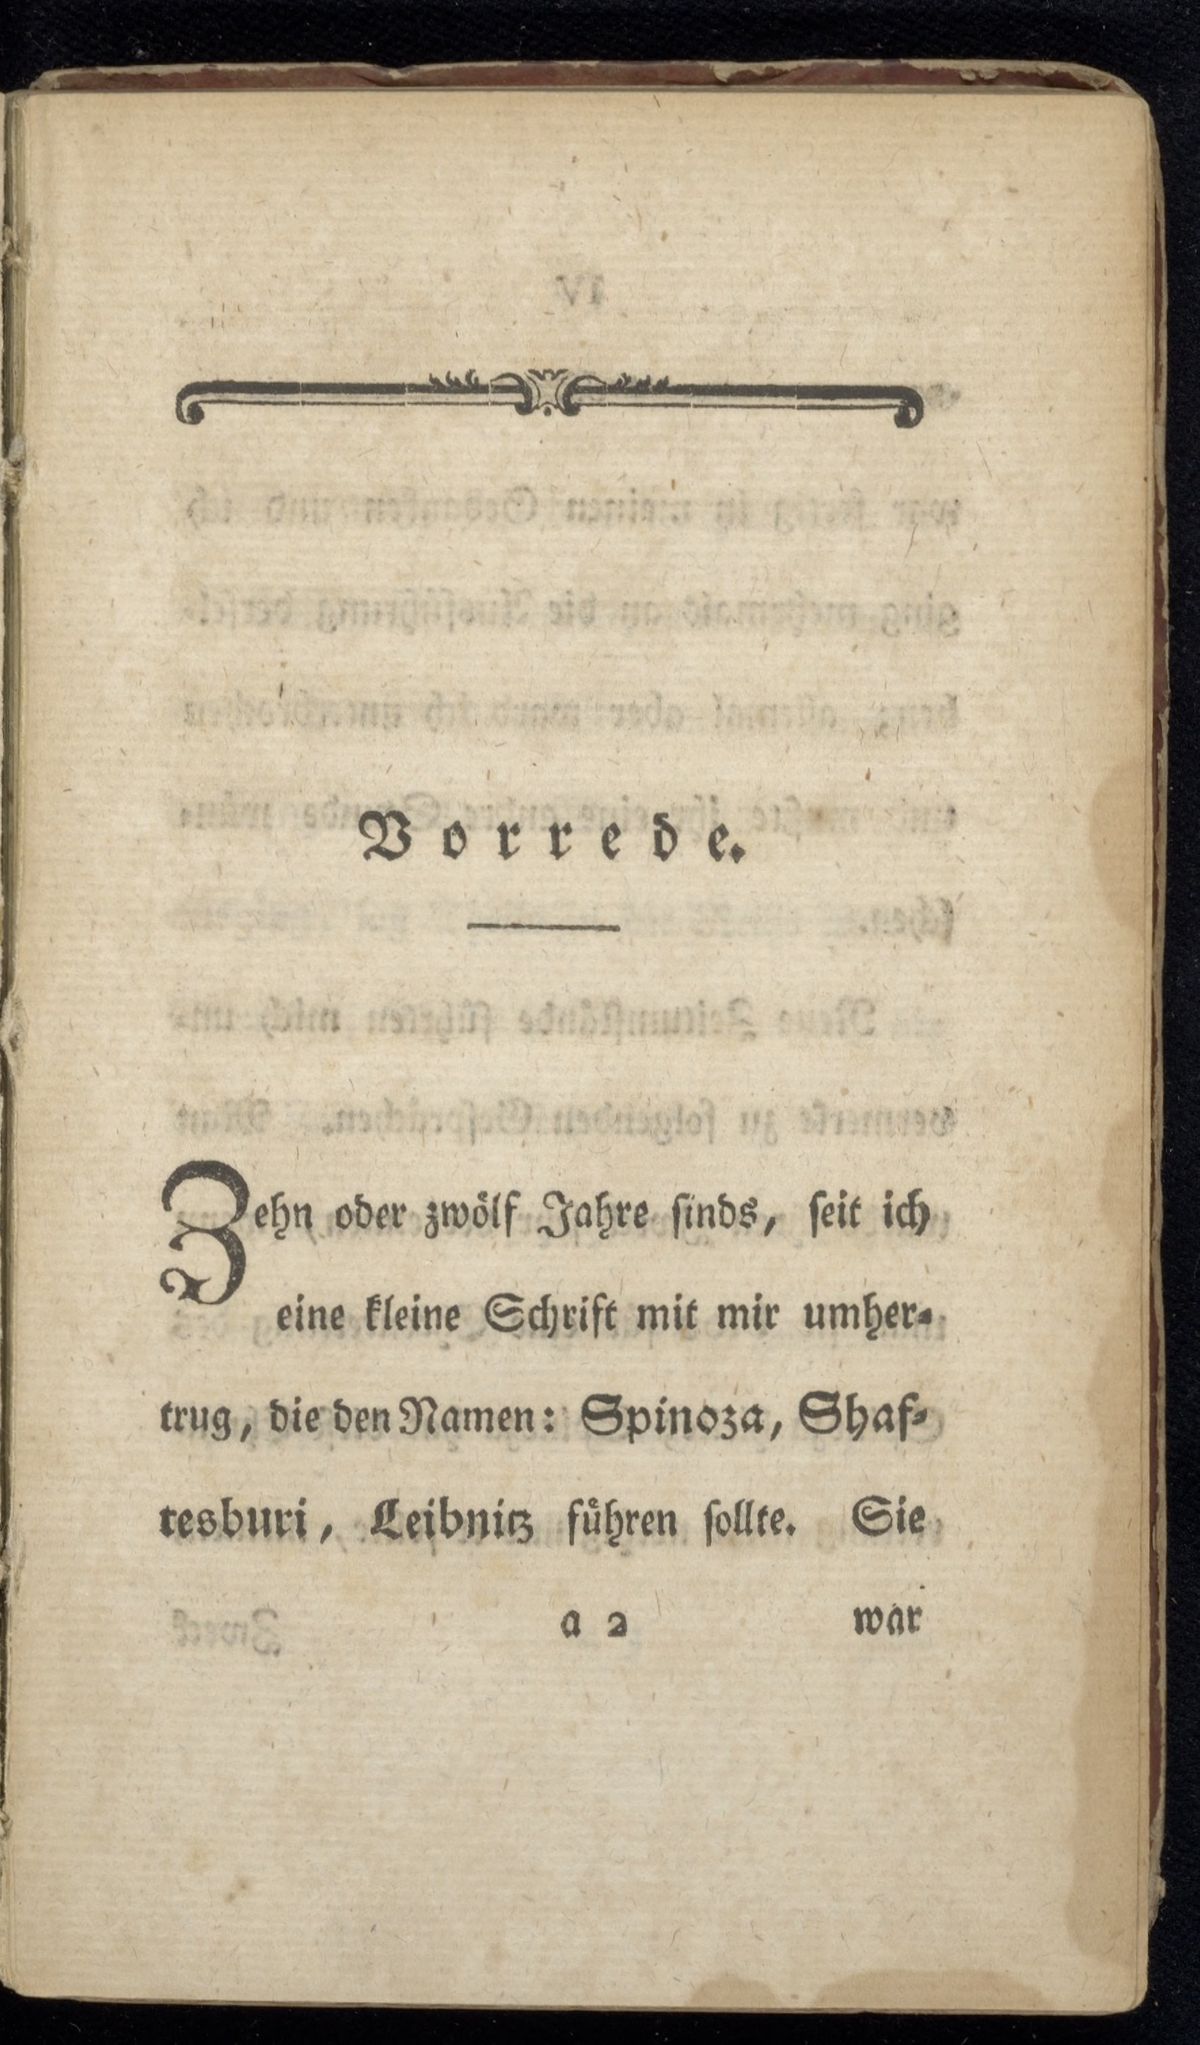 Vorrede.
Zehn oder zwölf Jahre ſinds, ſeit ich
eine kleine Schrift mit mir umher-
trug, die den Namen: Spinoza, Shaf-
tesburi, Leibnitz führen ſollte. Sie
a 2 war